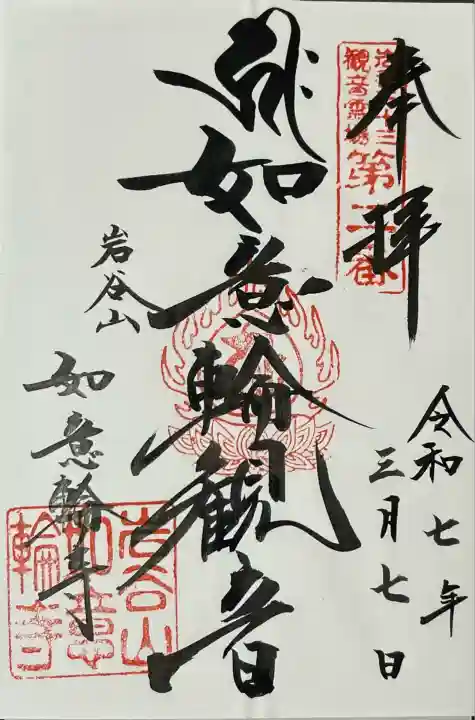 奉拝
令和七年
三月七日
如意輪観音
岩谷山
如意輪寺
観音霊場
第二番
岩谷山
如意
輪寺